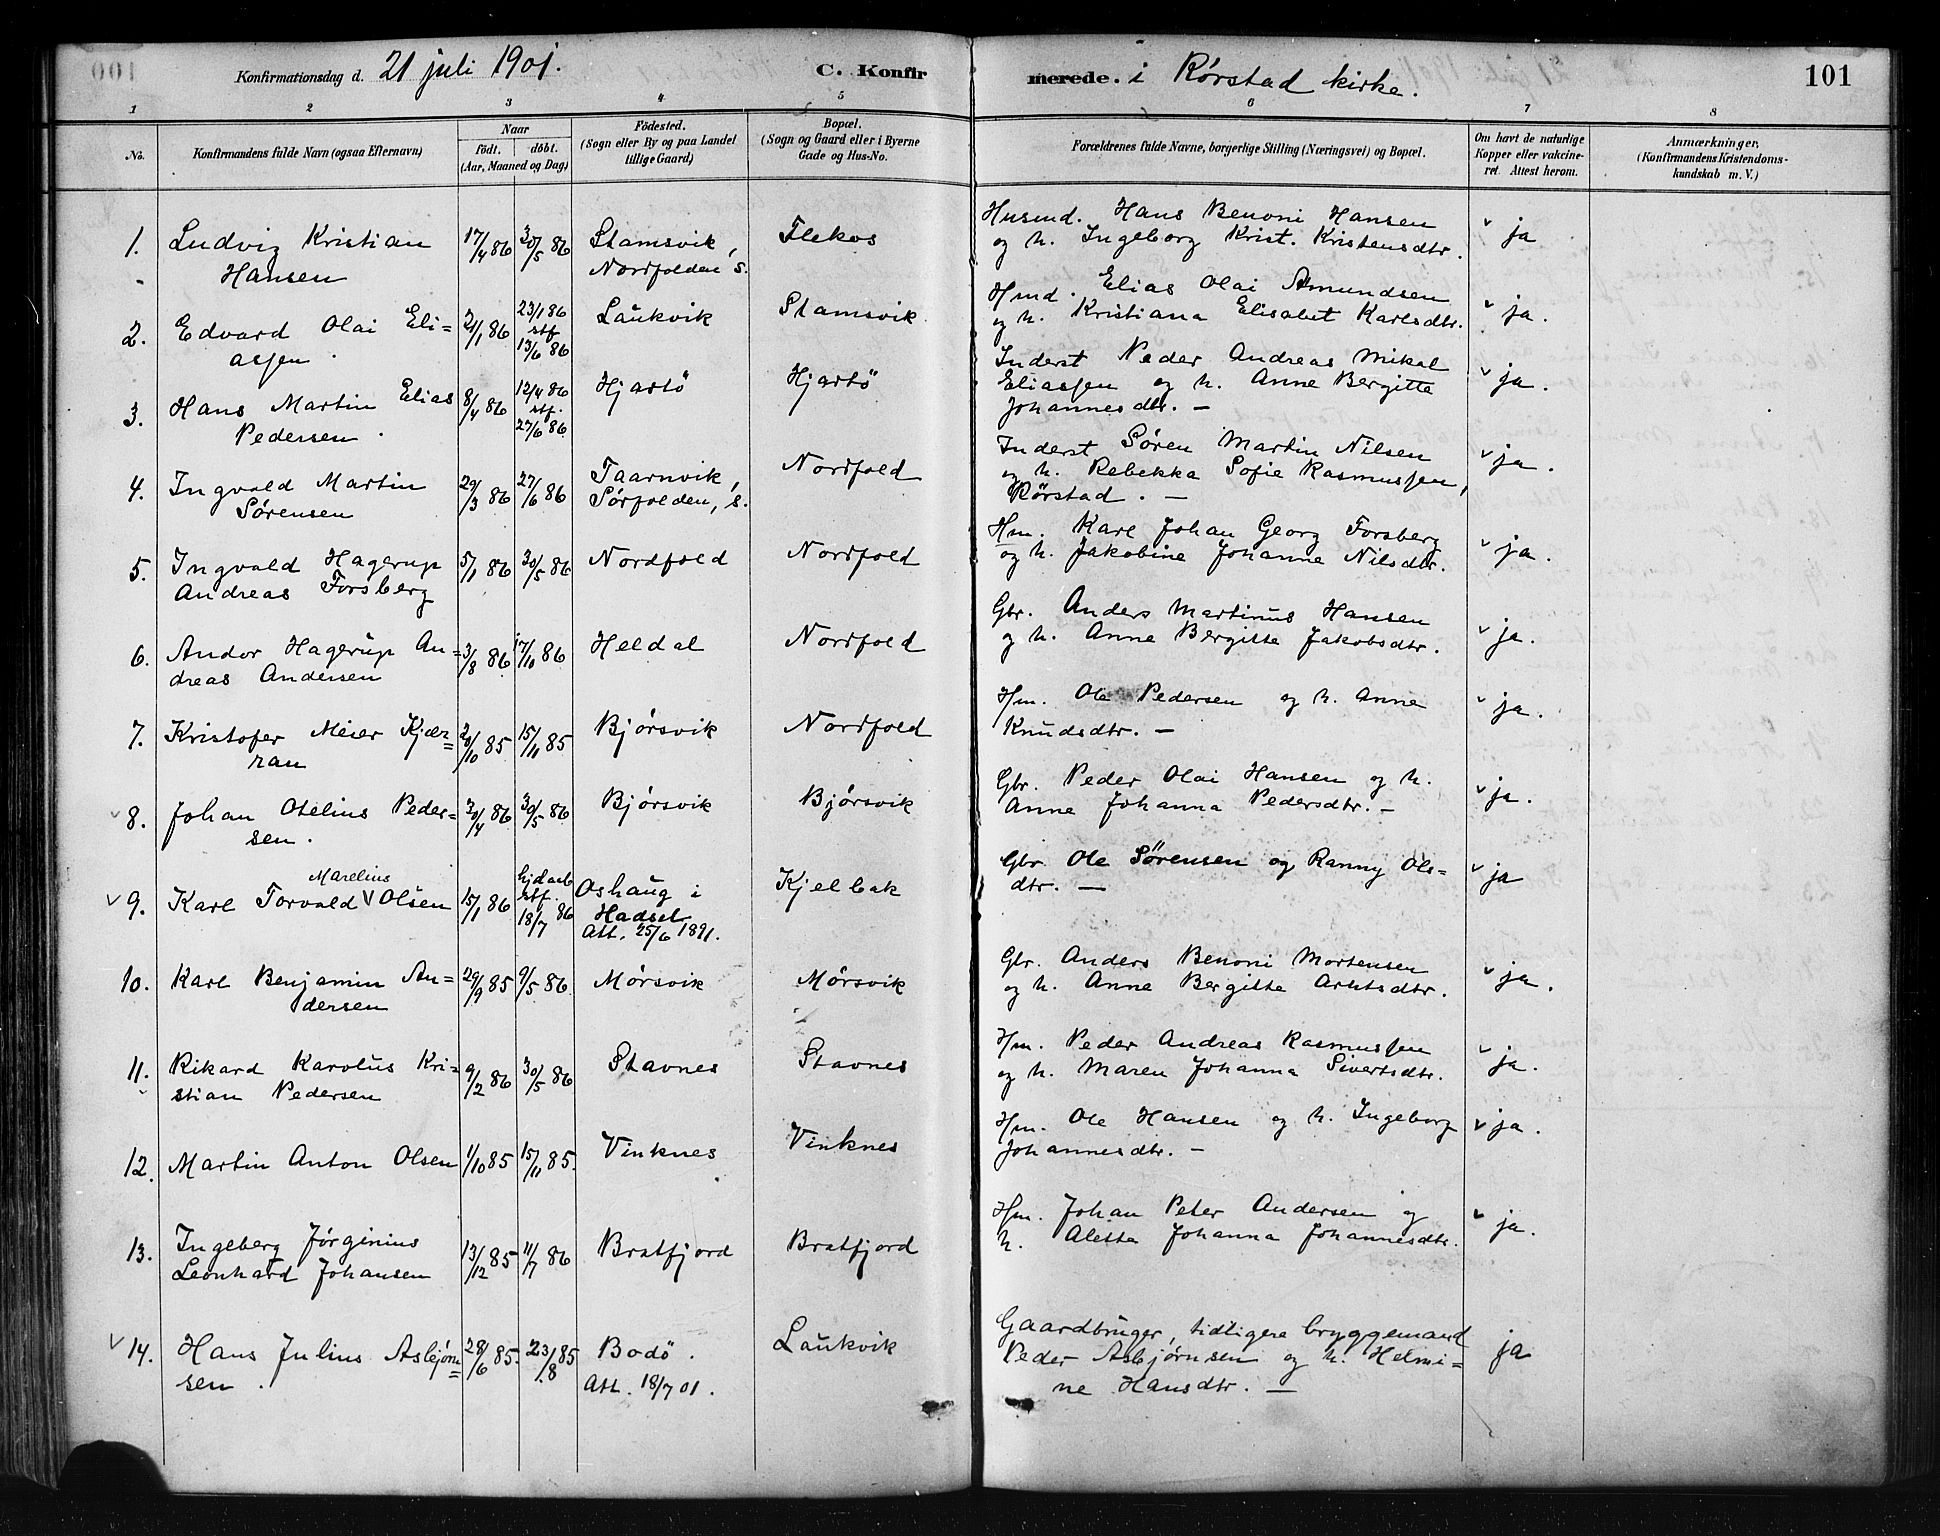 Konfirmationsdag d. 21 juli 1901. C. Konfirmerede. i Rørstad kirke. 101
1 2 3 4 5 6 7 8
No. Konfirmandens fulde Navn (ogsaa Efternavn) Naar født. døbt. (Aar, Maaned og Dag) Födested. (Sogn eller By og paa Landet tillige Gaard) Bopæl. (Sogn og Gaard eller i Byerne Gade og Hus-No. Forældrenes fulde Navne, borgerlige Stilling (Næringsvei) og Bopæl. Om havt de naturlige Kopper eller vakcineret. Attest herom. Anmærkninger, (Konfirmandens Kristendomskundskab m. V.)
1. Ludvig Kristian 17/4 86 30/5 86 Stamsvik, Flekos Husmd. Hans Benoni Hansen ja
Hansen Nordfolden s. og h. Ingeborg Krist. Kristensdtr.
2. Edvard Olai Eli- 2/1 86 23/1 86 stf. 13/6 86 Laukvik Stamsvik Hmd. Elias Olai Amundsen ja.
assen. og h. Kristiana Elisabet Karlsdtr.
3. Hans Martin Elias 8/4 86 12/4 86 stf. 27/6 86 Hjartö Hjartö Inderst Peder Andreas Mikal ja.
Pedersen. Eliassen og h. Anne Bergitte
Johannesdtr. —
4. Ingvald Martin 29/3 86 27/6 86 Taarnvik, Nordfold Inderst Søren Martin Nilsen ja.
Sørensen Sørfolden, s. og h. Rebekka Sofie Rasmussen,
Rörstad. —
5. Ingvald Hagerup 5/1 86 30/5 86 Nordfold Nordfold Hm. Karl Johan Georg Forsberg ja.
Andreas Forsberg og h. Jakobine Johanne Nilsdtr.
6. Andor Hagerup An= 3/8 86 17/10 86 Heldal Nordfold Gbr. Anders Martinus Hansen ja.
dreas Andersen og h. Anne Bergitte Jakobsdtr.
7. Kristofer Meier Kjær= 20/10 85 15/11 85 Bjørsvik Nordfold Hm. Ole Pedersen og h. Anne ja.
ran Knudsdtr. —
8. Johan Otelius Peder- 30/4 86 30/5 86 Bjørsvik Bjørsvik Gbr. Peder Olai Hansen og h. ja.
sen. Anne Johanna Pedersdtr. —
9. Karl Torvald Marelius Olsen 15/1 86 hjdøb stf. 18/7 86 Oshaug i Kjelbak Gbr. Ole Sörensen og Ranny Ols= ja
Hadsel dtr. —
Att. 25/6 1891.
10. Karl Benjamin An= 29/9 85 9/5 86 Mørsvik Mørsvik Gbr. Anders Benoni Mortensen ja.
dersen og h. Anne Bergitte Arntsdtr.
11. Rikard Karolus Kri- 9/2 86 30/5 86 Stavnes Stavnes Hm. Peder Andreas Rasmussen ja.
stian Pedersen og h. Maren Johanna Sivertsdtr.
12. Martin Anton Olsen 1/10 85 15/11 85. Vinknes Vinknes Hm. Ole Hansen og h. Ingeborg ja.
Johannesdtr. —
13. Ingeberg Jørginius 13/12 85 11/7 86 Bratfjord Bratfjord Hm. Johan Peter Andersen og ja.
Leonhard Johansen h. Aletta Johanna Johannesdtr.
14. Hans Julius Asbjørn= 28/6 85. 23/8 85 Bodö. Laukvik Gaardbruger, tidligere bryggemand ja
sen. Att. 18/7 01. Peder Asbjørnsen og h. Helmi=
ne Hansdtr. —